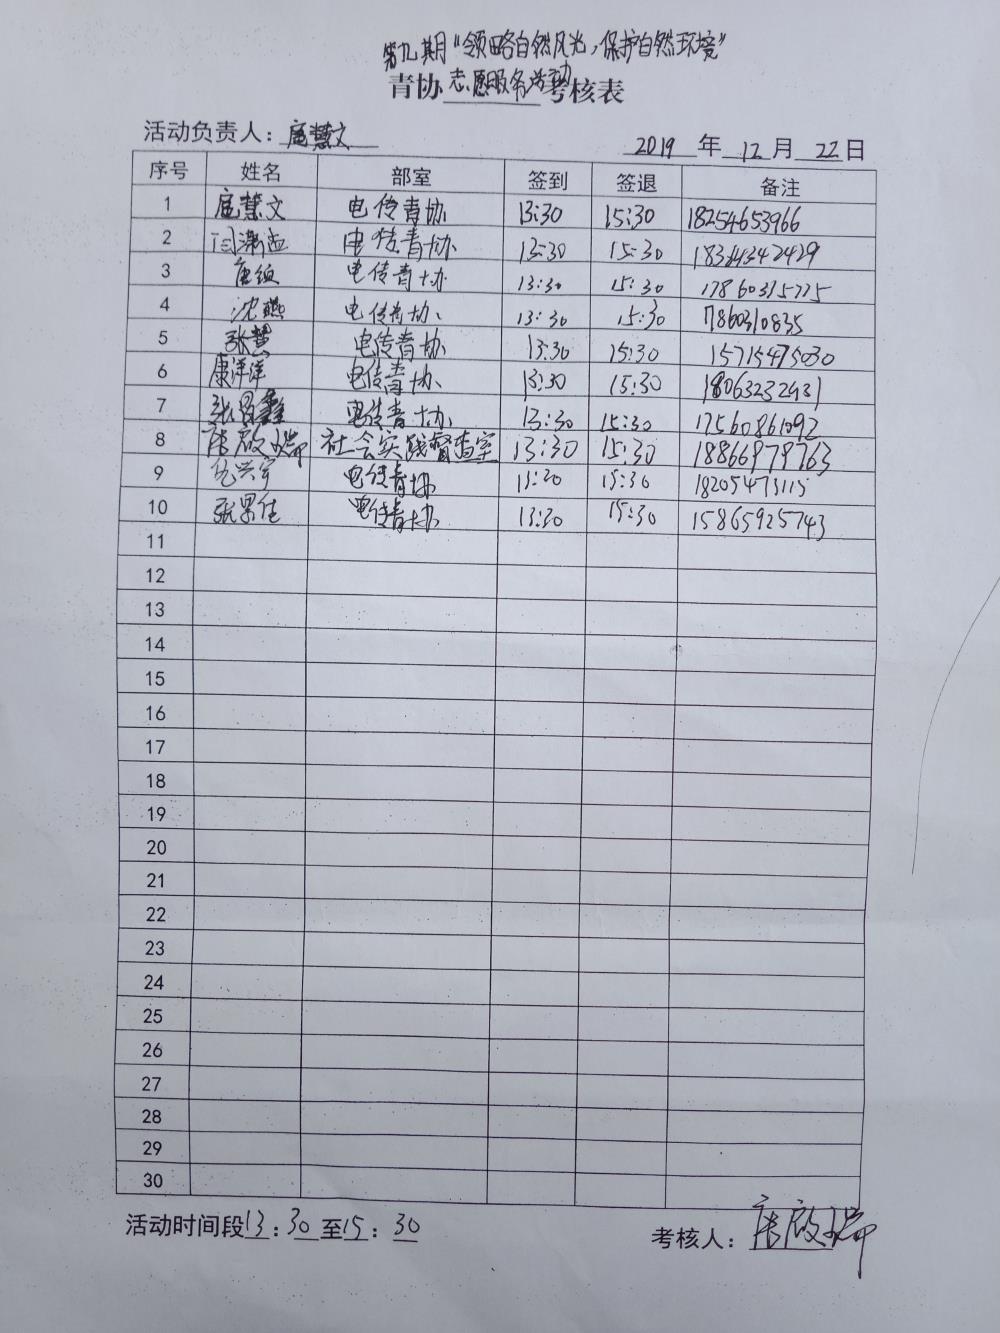 第九期“领略自然风光，保护自然环境”
青协 志愿服务活动 考核表
活动负责人：扈慧文
2019 年 12 月 22 日
序号 姓名 部室 签到 签退 备注
1 扈慧文 电传青协 13:30 15:30 18254653966
2 闫潇孟 电传青协 13:30 15:30 18364342429
3 唐 电传青协 13:30 15:30 17860315715
4 沈燕 电传青协 13:30 15:30 17860310835
5 张慧 电传青协 13:30 15:30 15715475030
6 康洋洋 电传青协 13:30 15:30 18063232431
7 张鑫 电传青协 13:30 15:30 17560861092
8 唐啟瑞 社会实践督查室 13:30 15:30 18866979763
9 兴宇 电传青协 13:30 15:30 18205473115
10 张果佳 电传青协 13:30 15:30 15865925743
11
12
13
14
15
16
17
18
19
20
21
22
23
24
25
26
27
28
29
30
活动时间段 13：30 至 15：30
考核人：唐啟瑞